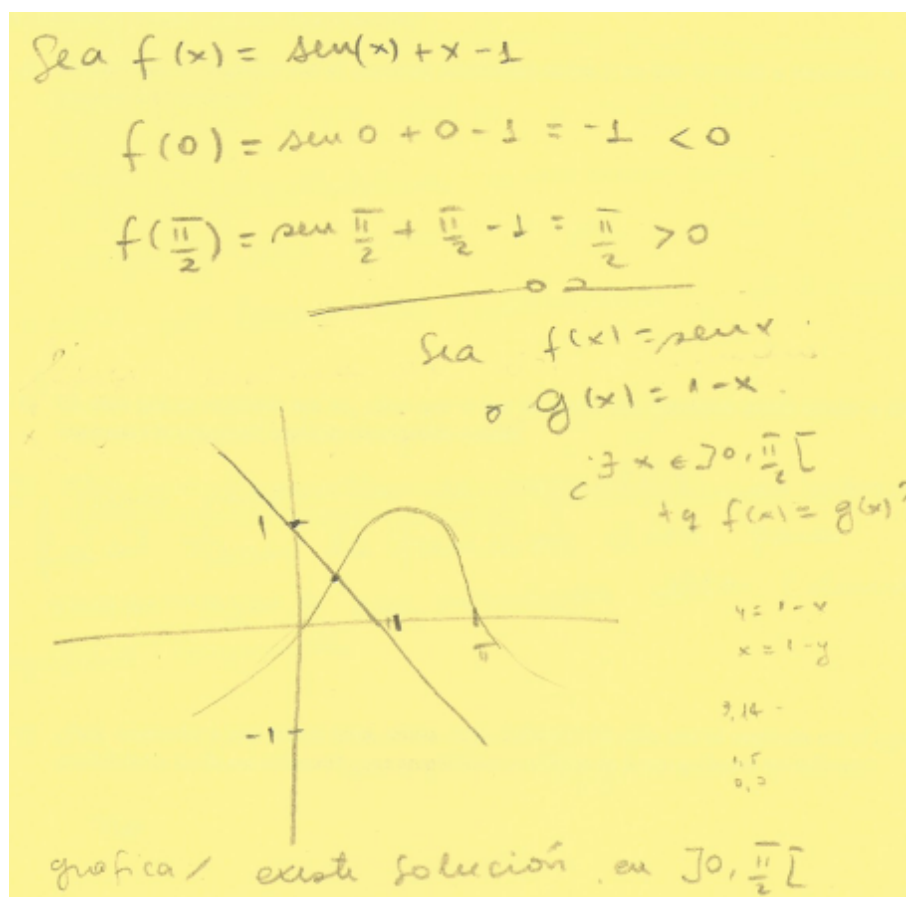 Sea f(x) = sen(x) + x - 1
f(0) = sen 0 + 0 - 1 = -1 < 0
f(π/2) = sen π/2 + π/2 - 1 = π/2 > 0
Sea f(x) = sen x
g(x) = 1 - x.
¿∃ x ∈ ]0, π/2[
tq f(x) = g(x)?
1
1
π
-1
y = 1 - x
x = 1 - y
3,14
1,5
grafica/ existe solución en ]0, π/2[